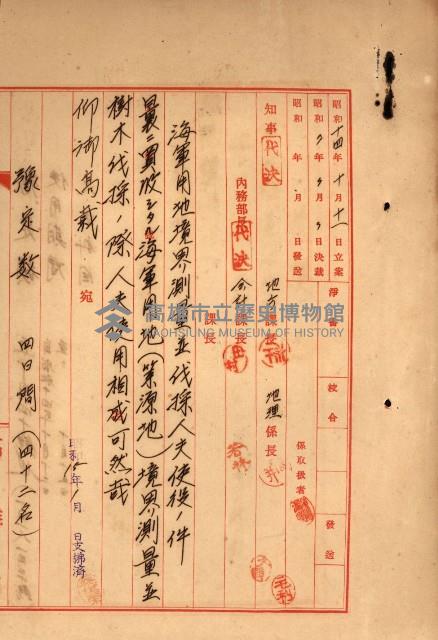 昭和十四年十月十一日立案
淨書
校合
發送
昭和 年 月 日決裁
昭和 年 月 日發送
係取扱者
知事
代決
地方課長
地理係長
內務部長
代決
会計課長
課長
海軍用地境界測量並伐採人夫使役ノ件
曩ニ買收シタル海軍用地(築源地)境界測量並
樹木伐採ノ際人夫使用相成可然哉
仰御高裁
宛
年 月 日支拂済
豫定數 四日間(四十二名)
高雄市立歷史博物館
KAOHSIUNG MUSEUM OF HISTORY